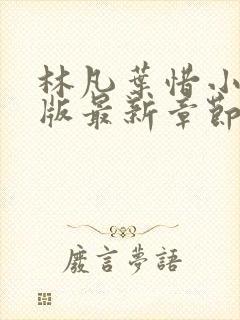 林凡葉惜小
版最新章節
廢言夢語